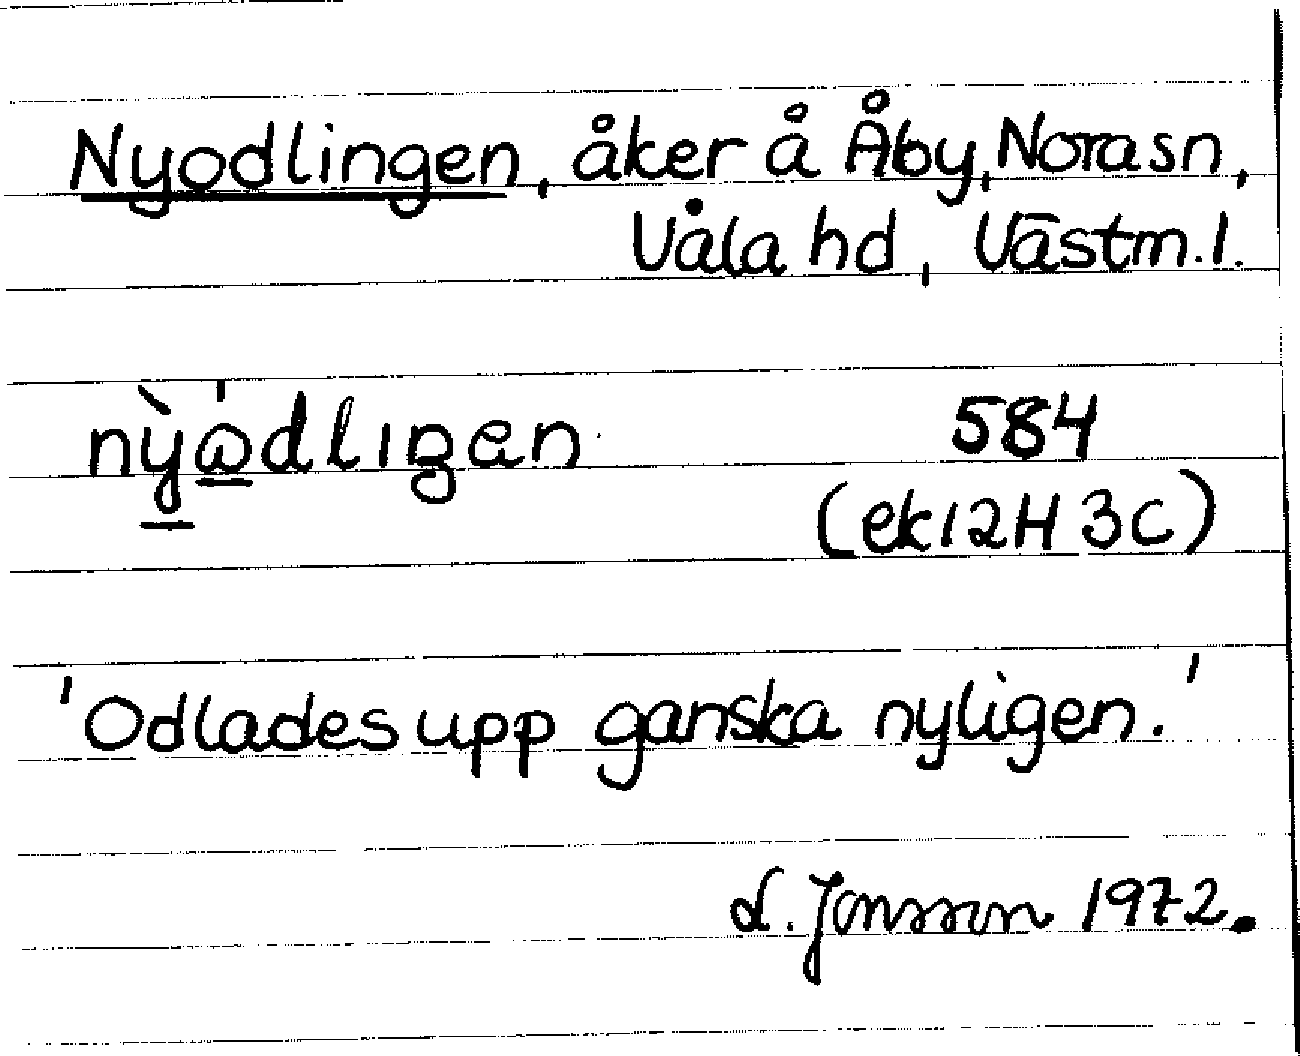 Nyodlingen, åker å Åby, Nora sn,
Våla hd, Västm. l.
nỳ̱ώ̱dlıŋən 584
(ek 12H 3c)
'Odlades upp ganska nyligen.'
L. Jonsson 1972.